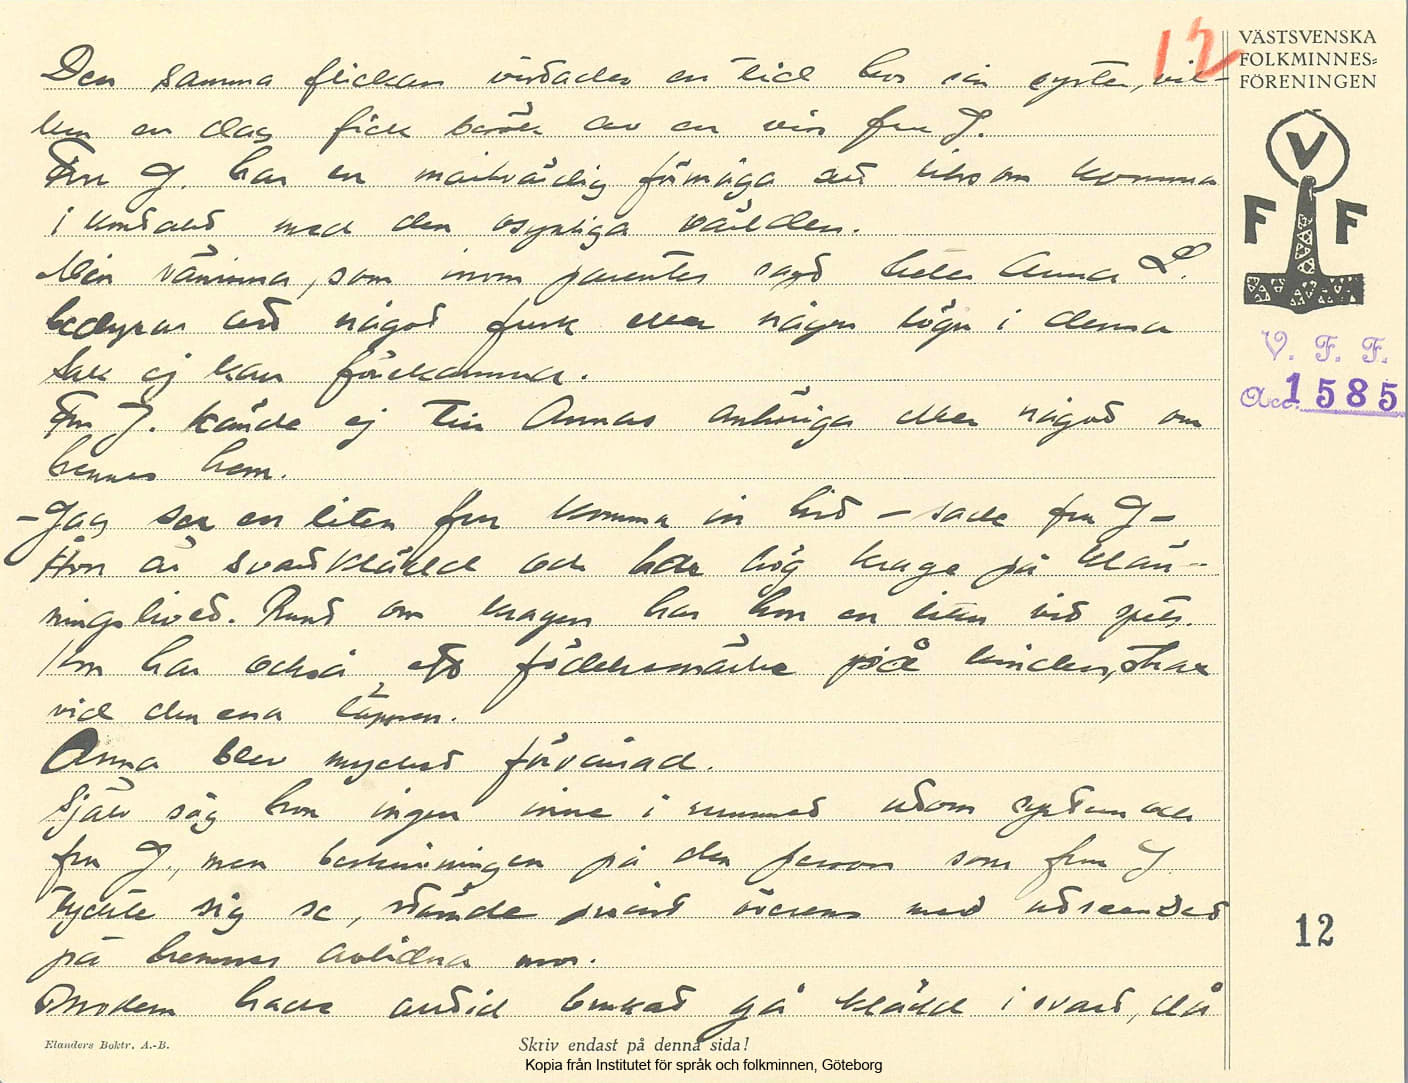 12
VÄSTSVENSKA
FOLKMINNES=
FÖRENINGEN
Den samma flickan vistades en tid hos sin syster, vil-
ken en dag fick besök av en viss fru J.
Fru J. har en märkvärdig förmåga att liksom komma
i kontakt med den osynliga världen.
Min väninna, som inom parentes sagt heter Anna L.
bedyrar att något fusk eller någon lögn i denna
sak ej kan förekomma.
Fru J. kände ej till Annas anhöriga eller något om
hennes hem.
- Jag ser en liten fru komma in hit - sade fru J -
Hon är svartklädd och har hög krage på klän-
ningslivet. Runt om kragen har hon en liten vit spets.
Hon har också ett födelsemärke på kinden, strax
vid den ena läppen.
Anna blev mycket förvånad.
Själv såg hon ingen inne i rummet utom systern och
fru J., men beskrivningen på den person som fru J.
tyckte sig se, stämde precist överens med utseendet
på hennes avlidna mor.
Modern hade alltid brukat gå klädd i svart, då
V
F F
V. F. F.
Acc. 1585
12
Elanders Boktr. A.-B.
Skriv endast på denna sida!
Kopia från Institutet för språk och folkminnen, Göteborg